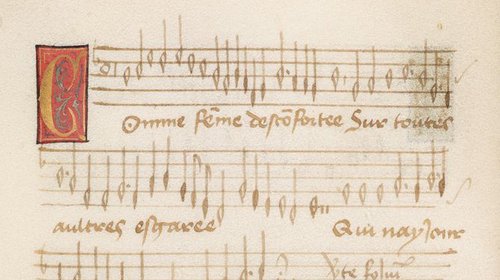 Comme fēme descōfortee Sur toutes
aultres esgaree Qui nay Jour